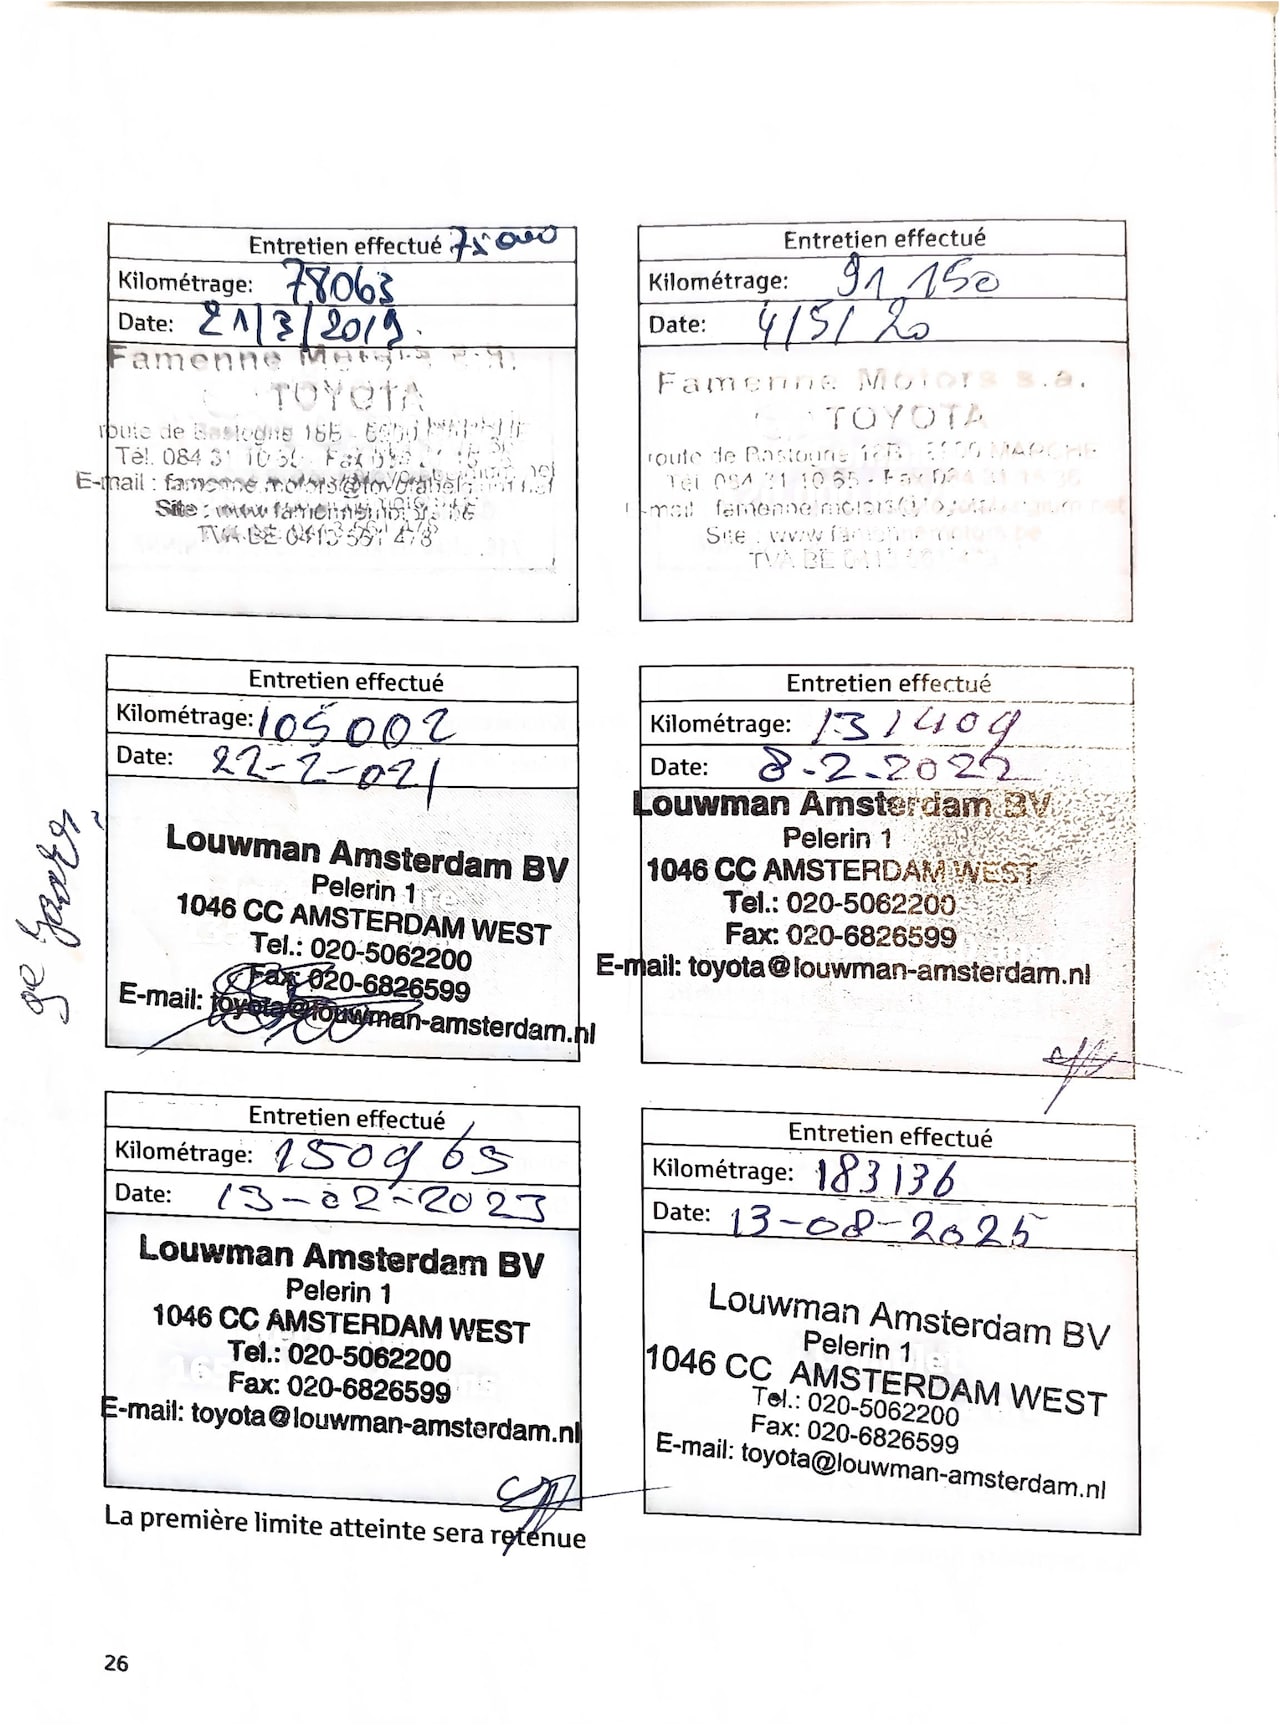 Entretien effectué 75000
Kilométrage: 78063
Date: 21/3/2019
Famenne Motors s.a.
TOYOTA
route de Bastogne
Tél. 084 31 10
E-mail :
Site :
TVA BE 0413 561 478
Entretien effectué
Kilométrage: 91 150
Date: 4/5/20
Famenne Motors s.a.
TOYOTA
route de Bastogne MARCHE
Tél. 084 31 10 65 - Fax 084 31 15 36
famennemotors@toyotabelgium.net
Site : www.famennemotors.be
TVA BE
Entretien effectué
Kilométrage: 105002
Date: 22-2-021
Louwman Amsterdam BV
Pelerin 1
1046 CC AMSTERDAM WEST
Tel.: 020-5062200
Fax: 020-6826599
E-mail: toyota@louwman-amsterdam.nl
Entretien effectué
Kilométrage: 131409
Date: 8-2-2022
Louwman Amsterdam BV
Pelerin 1
1046 CC AMSTERDAM WEST
Tel.: 020-5062200
Fax: 020-6826599
E-mail: toyota@louwman-amsterdam.nl
Entretien effectué
Kilométrage: 150965
Date: 13-02-2023
Louwman Amsterdam BV
Pelerin 1
1046 CC AMSTERDAM WEST
Tel.: 020-5062200
Fax: 020-6826599
E-mail: toyota@louwman-amsterdam.nl
Entretien effectué
Kilométrage: 183136
Date: 13-08-2025
Louwman Amsterdam BV
Pelerin 1
1046 CC AMSTERDAM WEST
Tel.: 020-5062200
Fax: 020-6826599
E-mail: toyota@louwman-amsterdam.nl
La première limite atteinte sera retenue
26